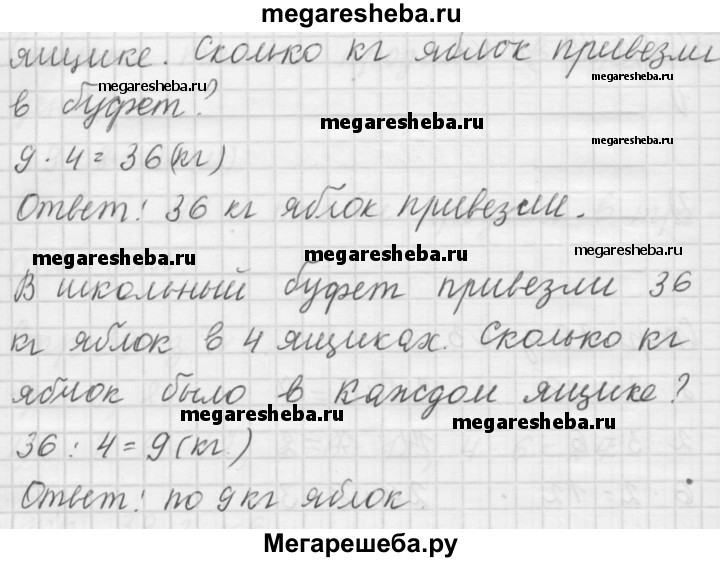 megaresheba.ru
ящике. Сколько кг яблок привезли
megaresheba.ru
megaresheba.ru
в буфет?
megaresheba.ru
9 · 4 = 36 (кг)
megaresheba.ru
Ответ: 36 кг яблок привезли.
megaresheba.ru
megaresheba.ru
megaresheba.ru
В школьный буфет привезли 36
кг яблок в 4 ящиках. Сколько кг
яблок было в каждом ящике?
megaresheba.ru
megaresheba.ru
36 : 4 = 9 (кг)
Ответ: по 9 кг яблок
megaresheba.ru
megaresheba.ru
Мегарешеба.ру